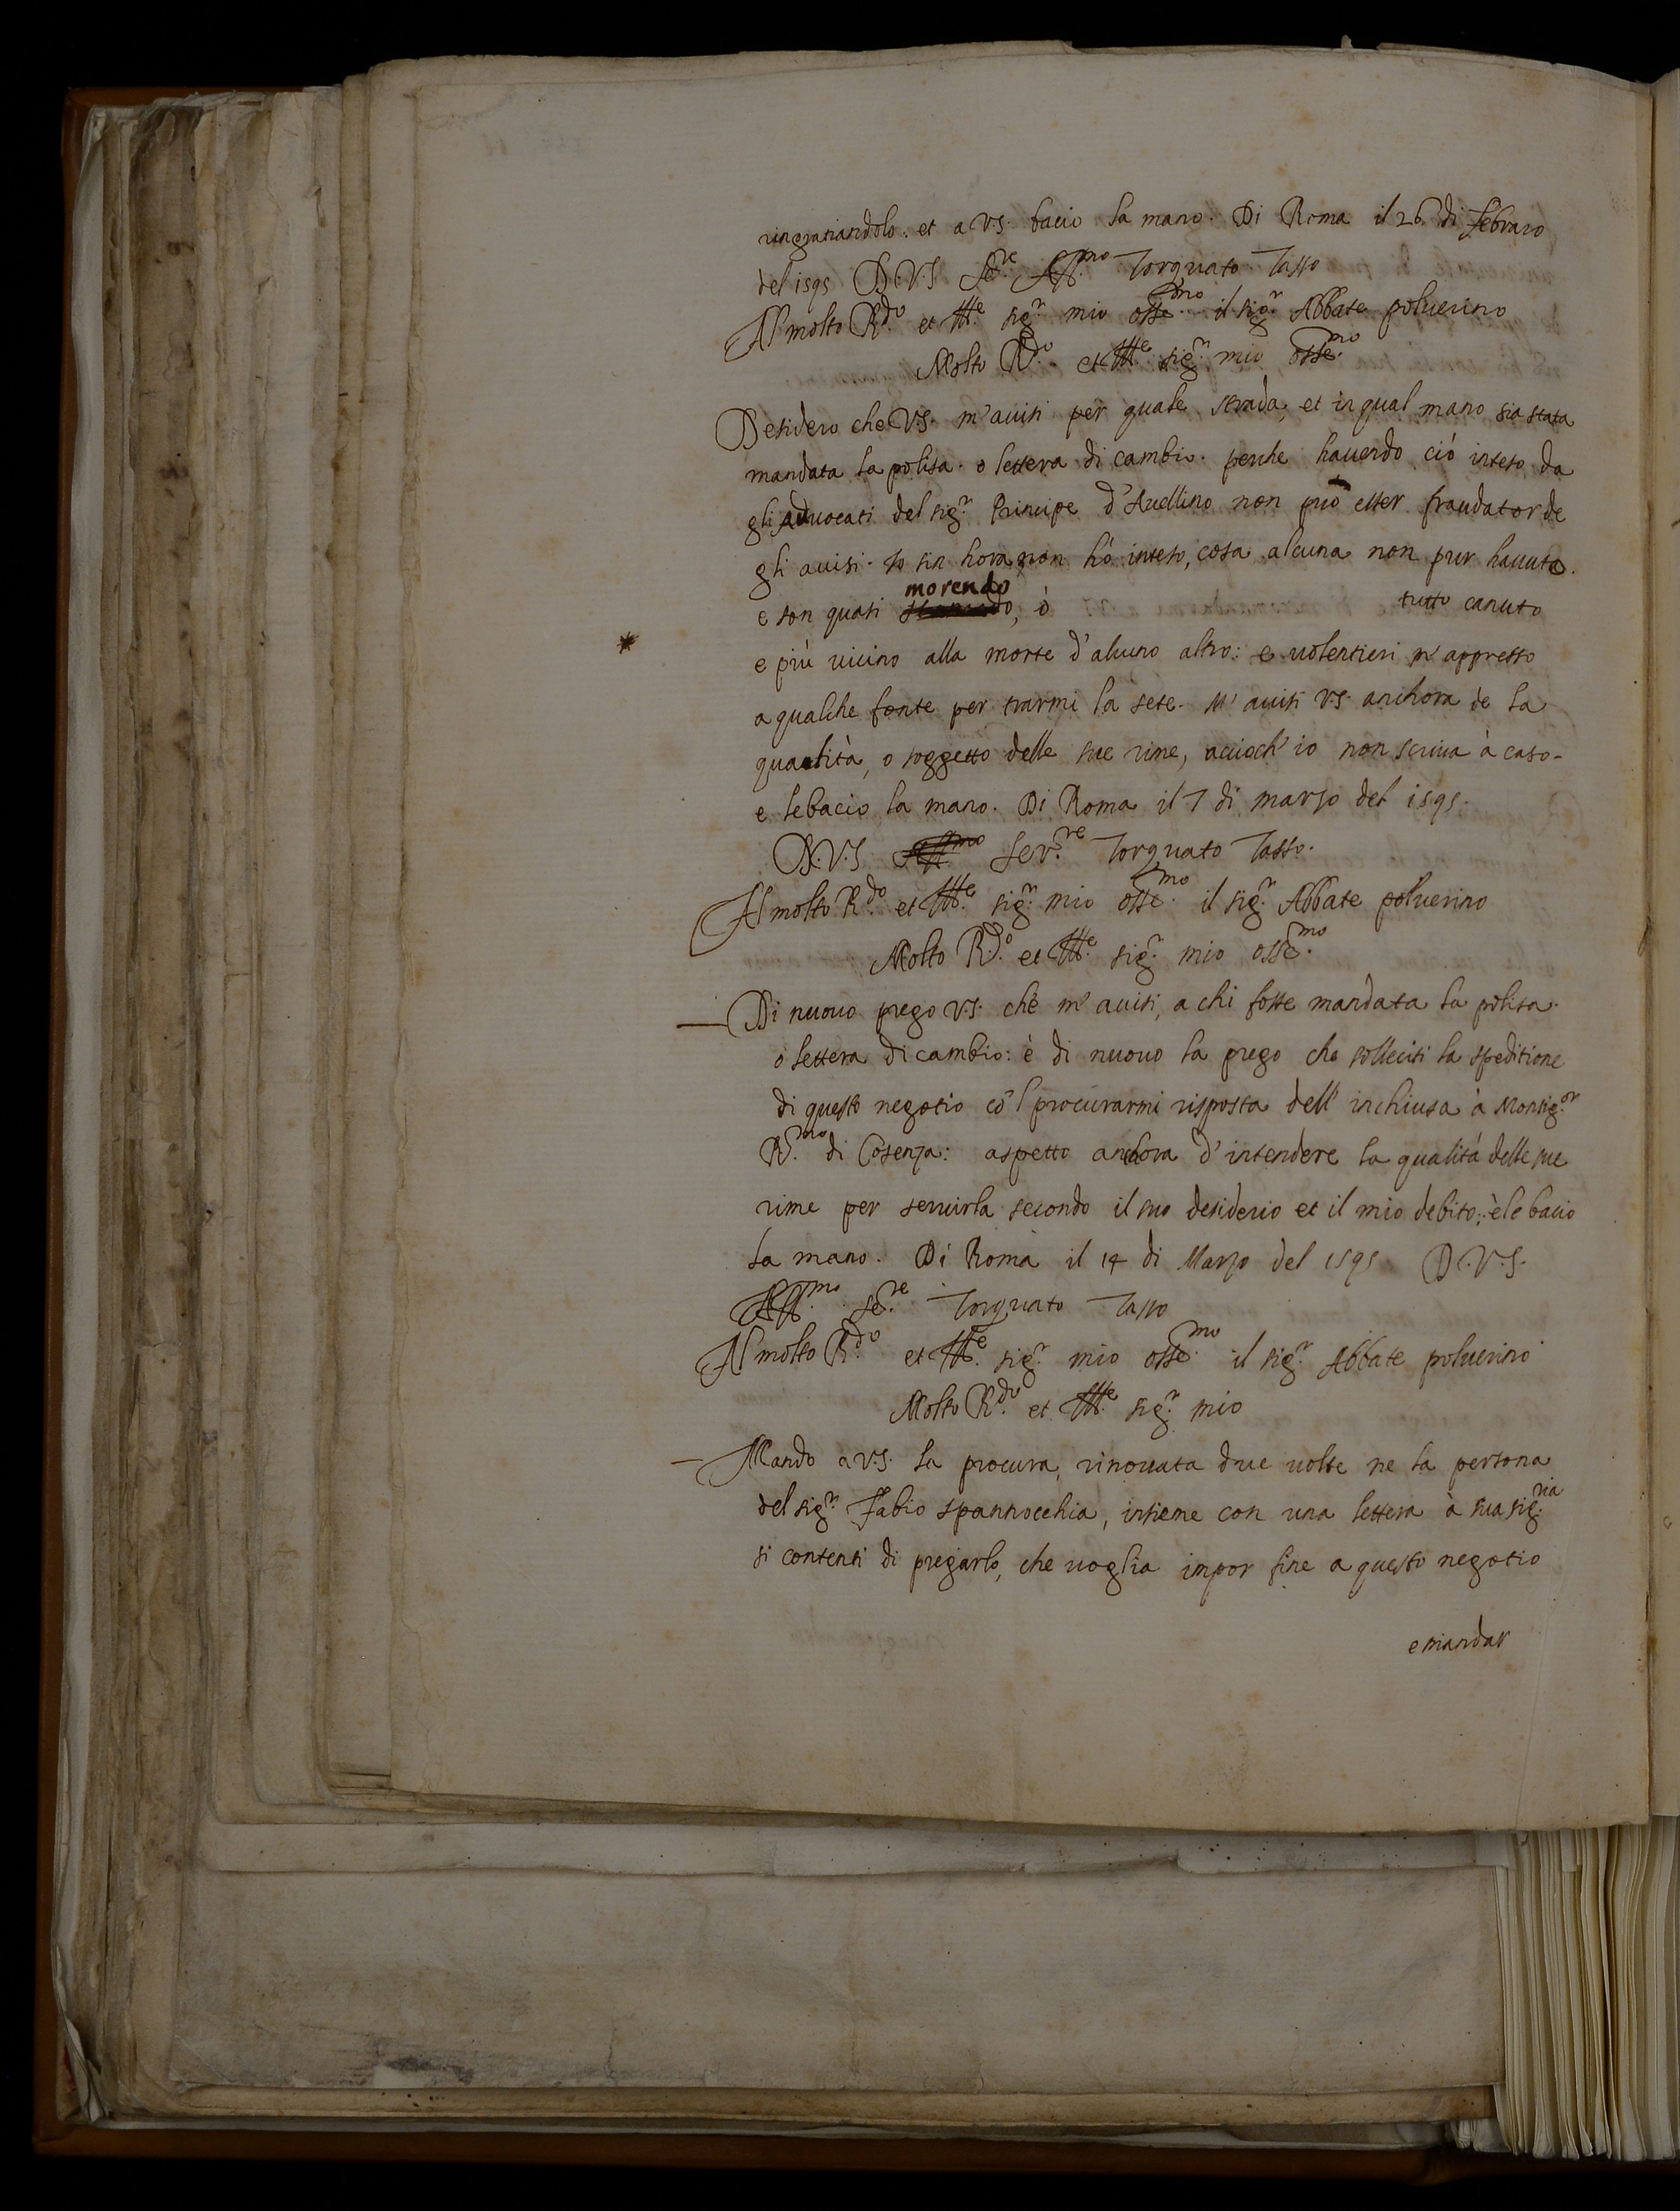 ringratiandolo. et a V.S. bacio la mano. Di Roma il 26 di Febraro
del 1595 D.V.S Se.re Aff.mo Torquato Tasso
Al molto R.do et Ill.e sig.r mio osse.mo il sig.r Abbate poluerino
Molto R.do et Ill.e sig.r mio osse.mo
Desidero che V.S. m'auisi per quale strada, et in qual mano sia stata
mandata la polisa. o lettera di cambio. perche hauendo ciò inteso da
gli aduocati del sig.r Principe d'Auellino non può esser fraudator de
gli auisi. Io sin hora non hò inteso, cosa alcuna non pur hauuta.
e son quasi morendo, ò tutto canuto
e più uicino alla morte d'alcuno altro: e uolentieri m'appresso
a qualche fonte per trarmi la sete. M'auisi V.S. anchora de la
qualità, o soggetto delle sue rime, accioch'io non scriua à caso.
e le bacio la mano. Di Roma il 7 di marzo del 1595.
D.V.S Aff.mo Ser.re Torquato Tasso.
Al molto R.do et Ill.e sig.r mio osse.mo il sig.r Abbate poluerino
Molto R.do et Ill.e sig.r mio osse.mo
Di nuouo prego V.S. che m'auisi, a chi fosse mandata la polisa.
ò lettera di cambio: è di nuouo la prego che solleciti la speditione
di questo negotio co'l procurarmi risposta dell'inchiusa à Monsig.or
R.mo di Cosenza: aspetto anchora d'intendere la qualità delle sue
rime per seruirla secondo il suo desiderio et il mio debito; è le bacio
la mano. Di Roma il 14 di Marzo del 1595 D.V.S.
Aff.mo Se.re Torquato Tasso
Al molto R.do et Ill.e sig.r mio osse.mo il sig.r Abbate poluerino
Molto R.do et Ill.e sig.r mio
Mando a V.S. la procura, rinouata due uolte ne la persona
del sig.r Fabio spannocchia, insieme con una lettera à sua sig.ria
si contenti di pregarlo, che uoglia impor fine a questo negotio
e mandar